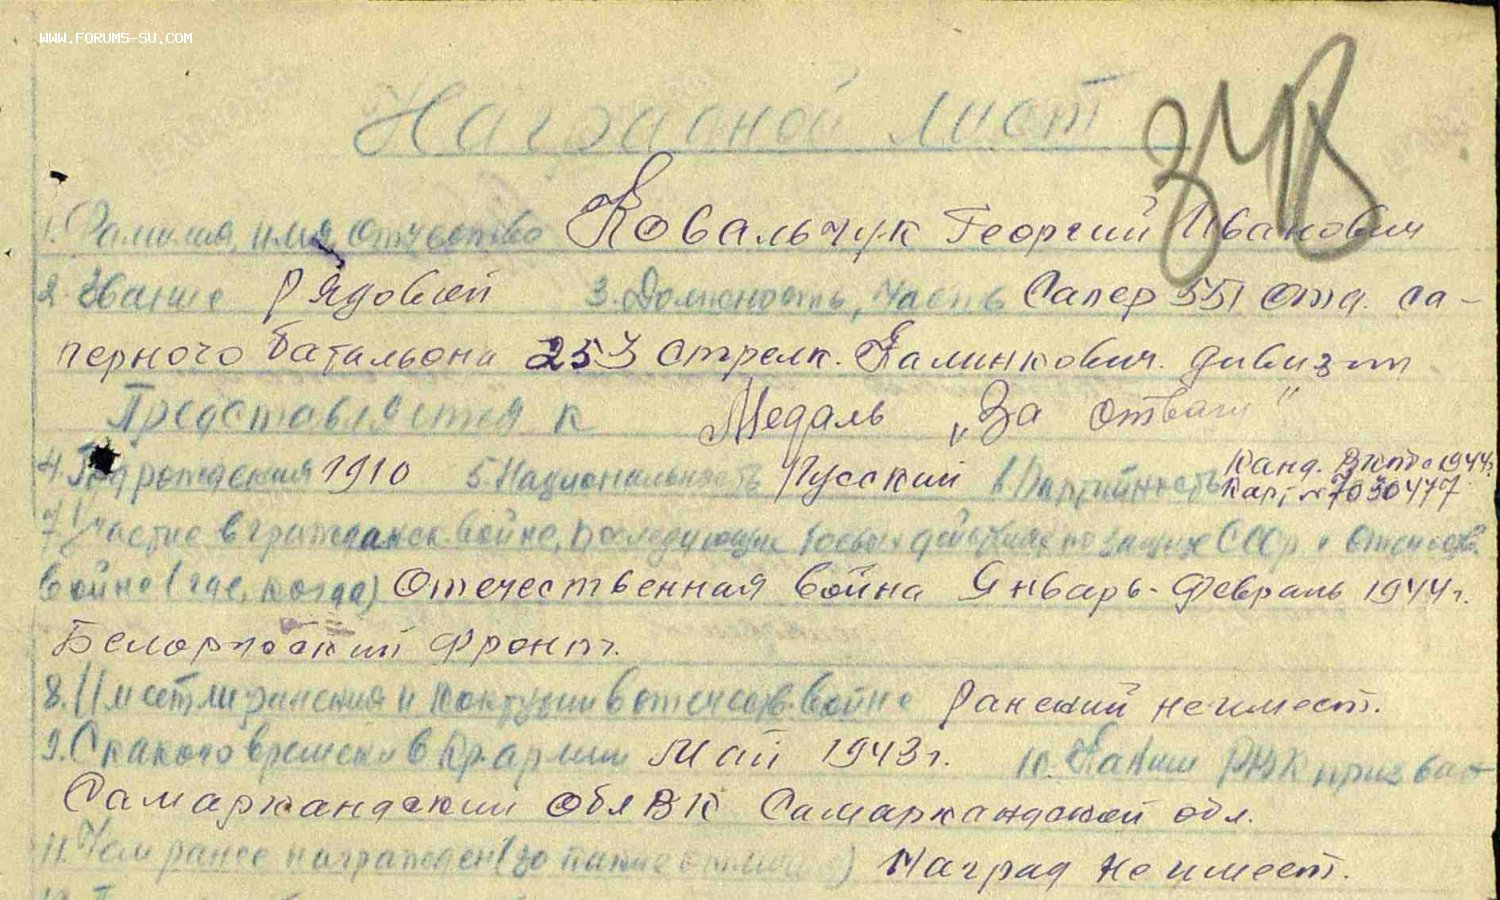 WWW.FORUMS-SU.COM
Наградной лист
1. Фамилия, имя, отчество Ковальчук Георгий Иванович
2. Звание рядовой 3. Должность, часть Сапер 551 отд. са-
перного батальона 253 стрелк. Калинкович. дивизии
Представляется к Медаль „За отвагу"
4. Год рождения 1910 5. Национальность Русский 6. Партийность Канд. ВКПб с 1944г.
Карт. № 7030477
7. Участие в гражданск. войне, последующих боевых действиях по защите СССР и отечеств.
войне (где, когда) Отечественная война Январь-февраль 1944г.
Белорусский фронт.
8. Имеет ли ранения и контузии в отечеств. войне Ранений не имеет.
9. С какого времени в Кр. армии Май 1943г. 10. Каким РВК призван
Самаркандский ОблВК Самаркандской обл.
11. Чем ранее награжден (за какие отличия) Наград не имеет.